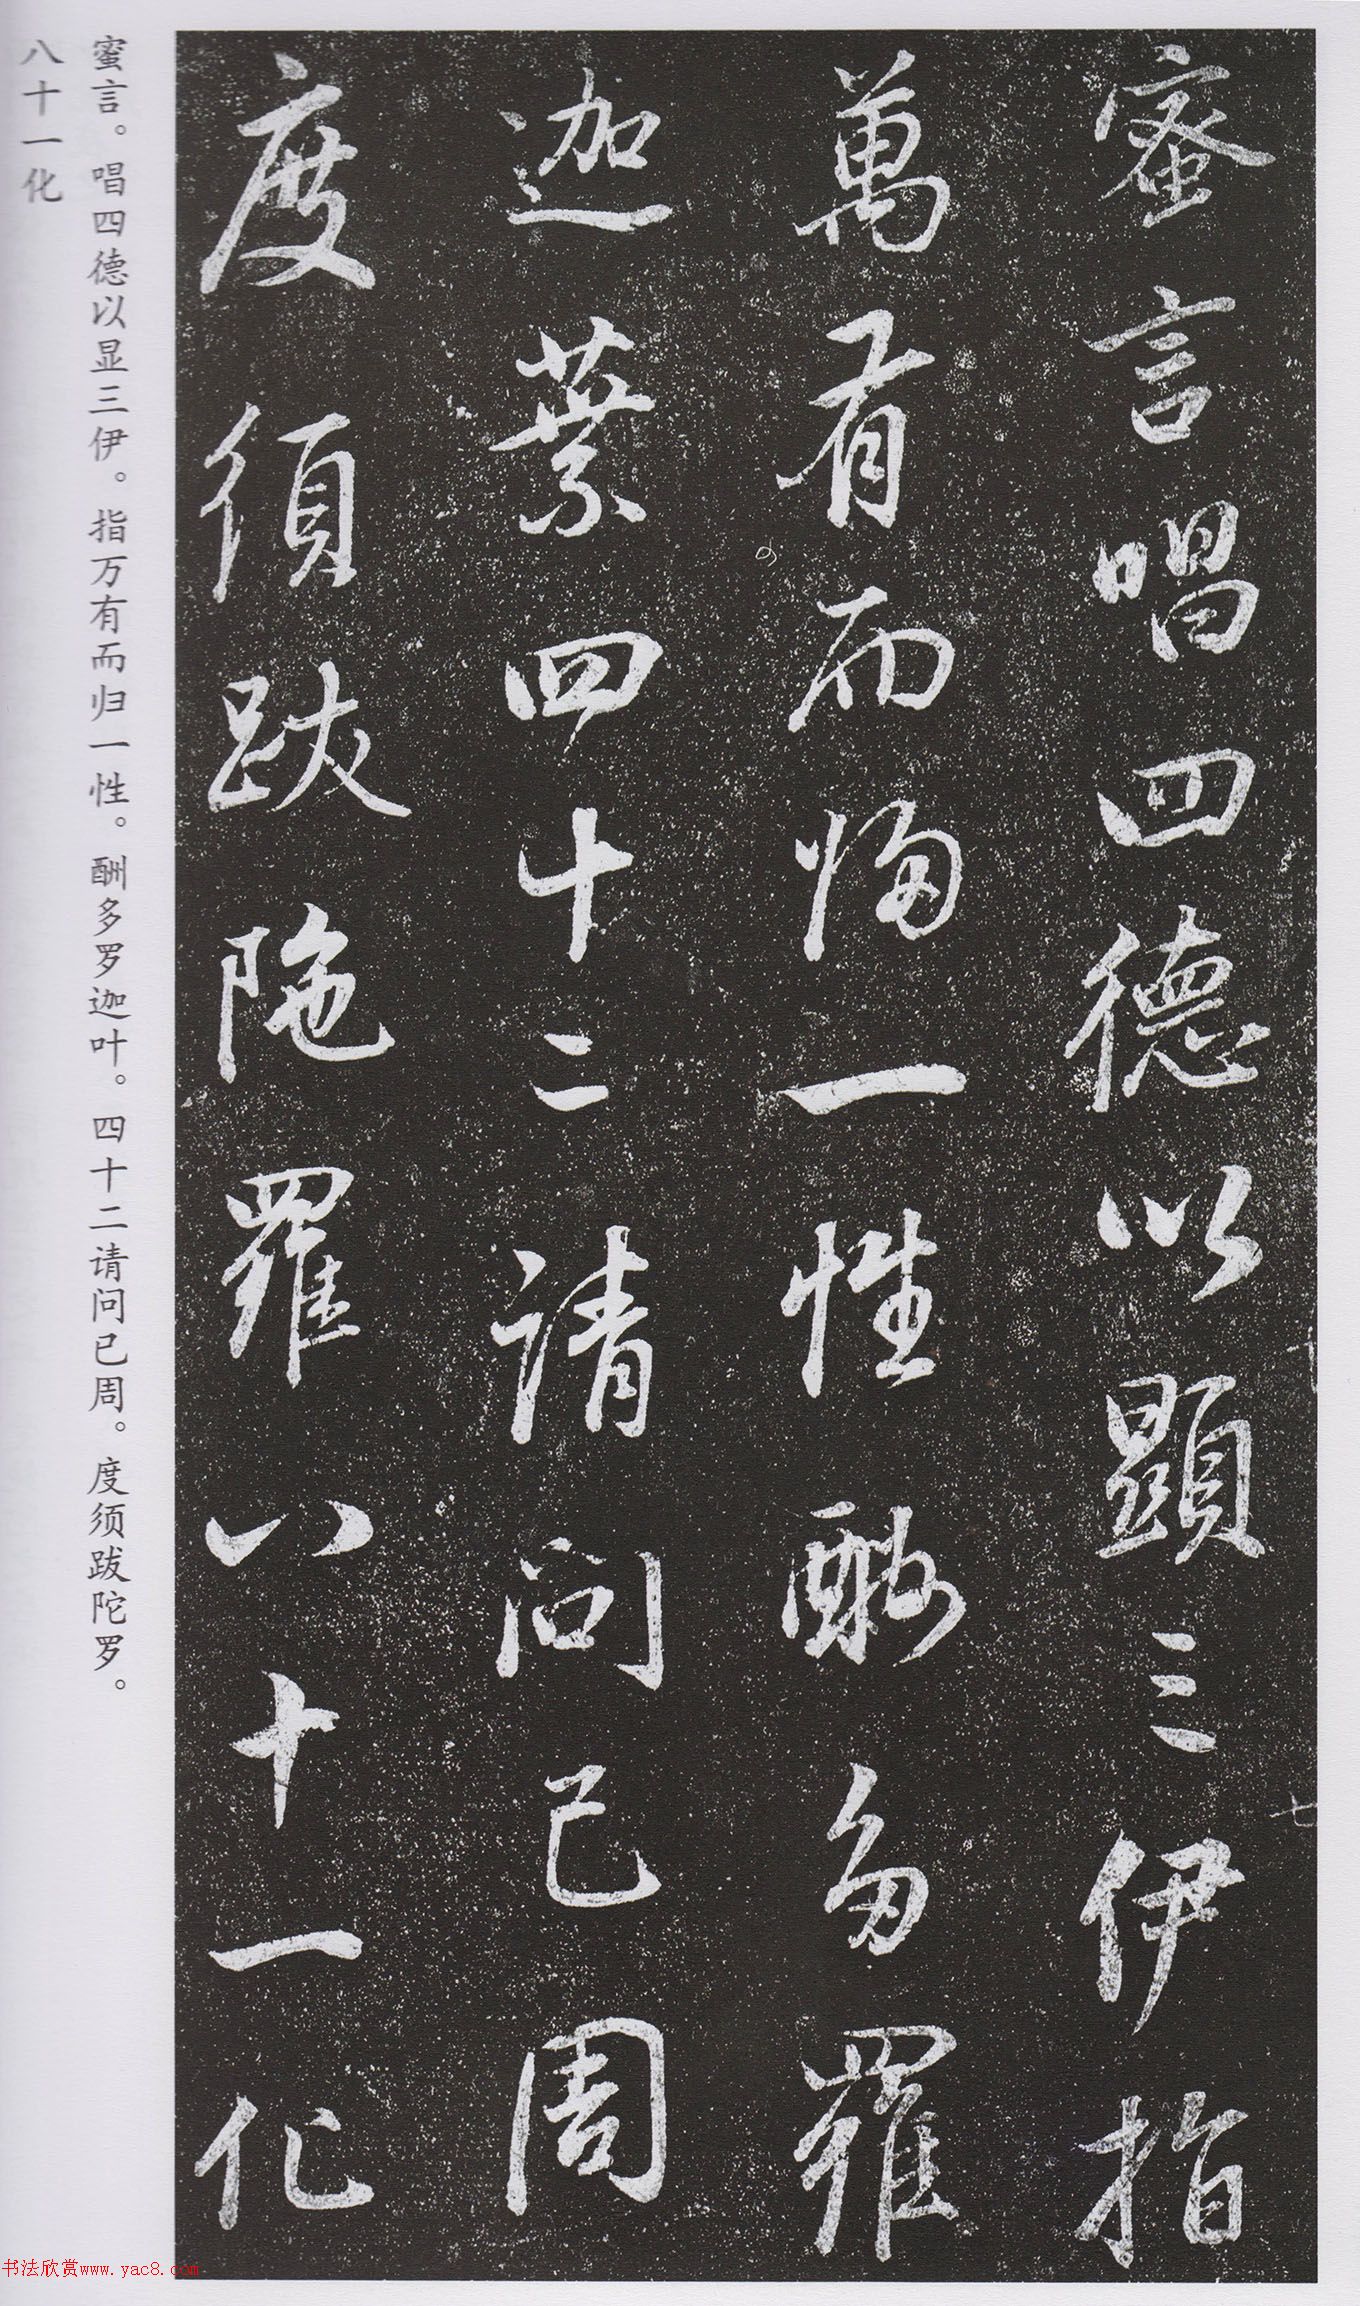 蜜言唱四德以顯三伊指
萬有而歸一性酬多羅
迦葉四十二請問已周
度須跋陁羅八十一化
蜜言。唱四德以显三伊。指万有而归一性。酬多罗迦叶。四十二请问已周。度须跋陀罗。
八十一化
七
书法欣赏www.yac8.com